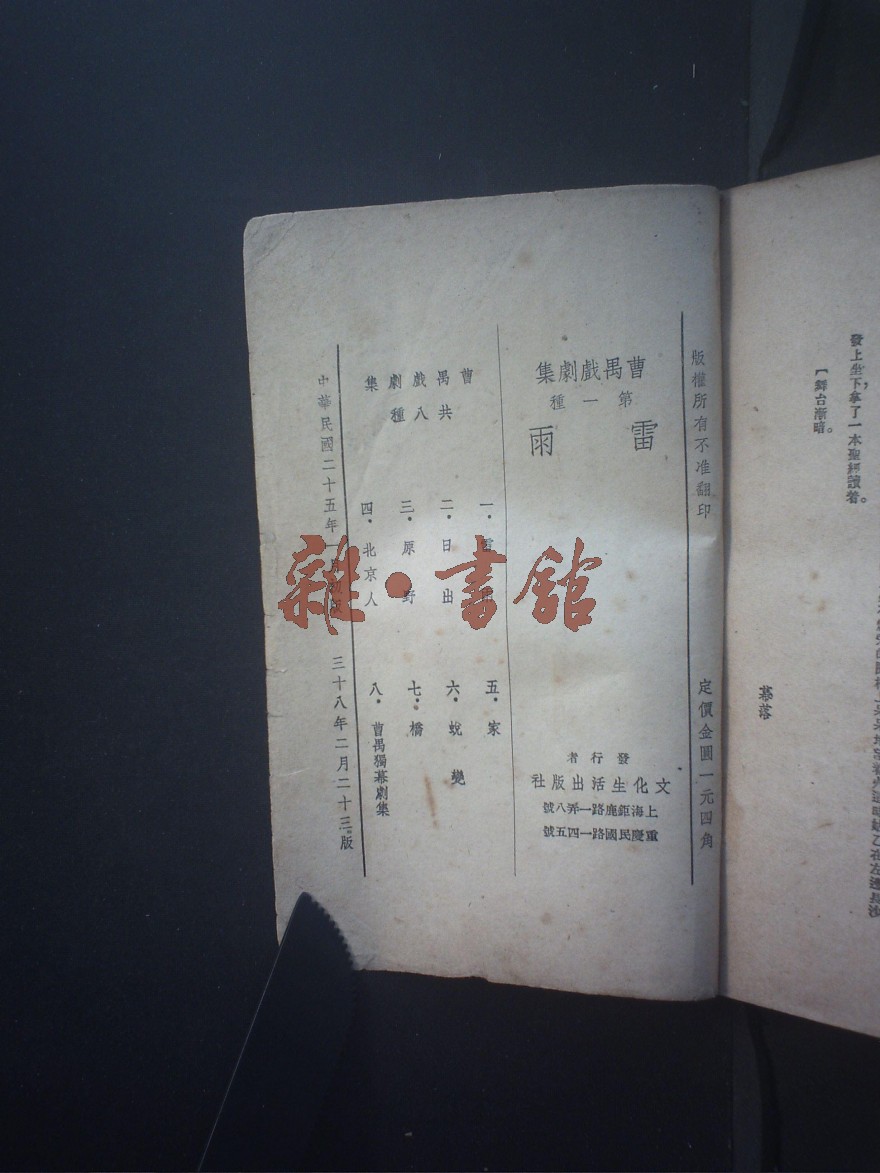 發上坐下，拿了一本聖經讀着。
〔舞台漸暗。
幕落
版權所有不准翻印 定價金圓一元四角
曹禺戲劇集
第一種
雷雨
發行者
文化生活出版社
上海鉅鹿路一弄八號
重慶民國路一四五號
曹禺戲劇集
共八種
一·雷雨
二·日出
三·原野
四·北京人
五·家
六·蛻變
七·橋
八·曹禺獨幕劇集
中華民國二十五年一月初版 三十八年二月二十三版
雜·書館